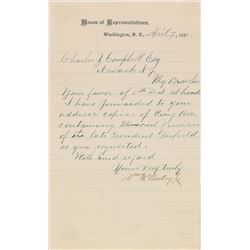 House of Representatives,
Washington, D. C., April 7, 188
Charles J. Campbell Esq
Newark N.J.
My Dear Sir
Your favor of 5th inst. at hand
I have forwarded to your
address copies of Cong. Rec.
containing Memorial Services
of the late President Garfield
as you requested.
With kind regard
Yours very truly
Wm McKinley Jr